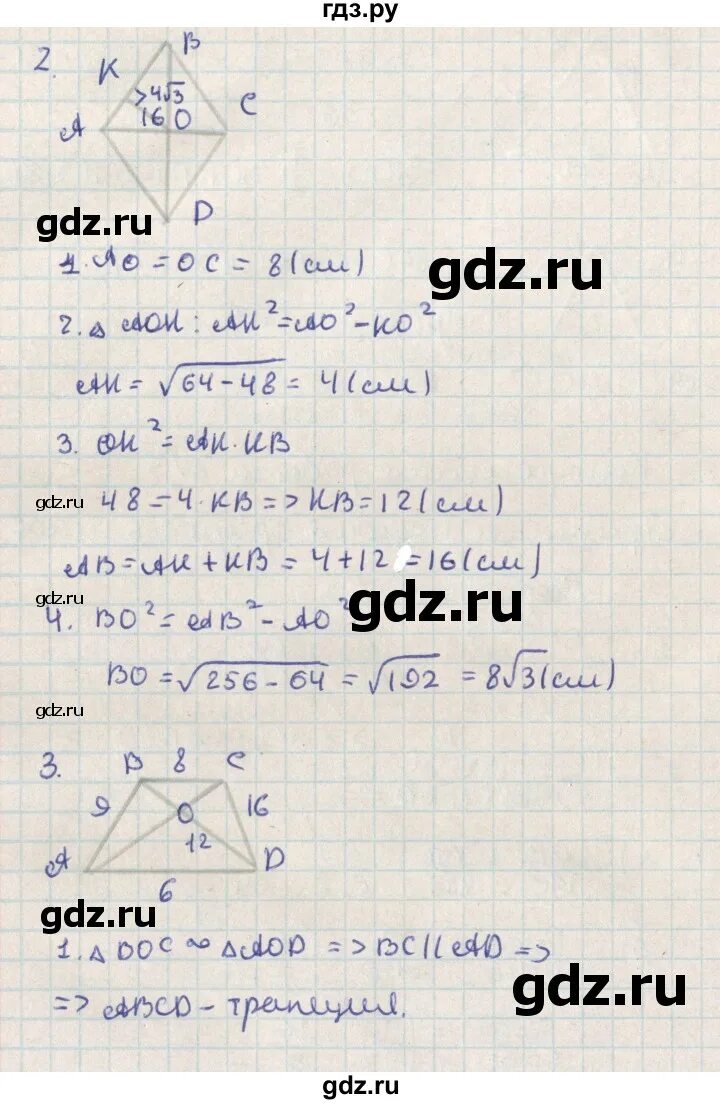 гдз.ру
2.
K
B
>4√3
16 O
C
A
D
gdz.ru
1. AO = OC = 8 (см)
gdz.ru
2. △ AOK : AK² = AO² - KO²
AK = √64 - 48 = 4 (см)
3. OK² = AK · KB
gdz.ru
48 = 4 · KB => KB = 12 (см)
AB = AK + KB = 4 + 12 = 16 (см)
gdz.ru
gdz.ru
4. BO² = AB² - AO²
BO = √256 - 64 = √192 = 8√3 (см)
gdz.ru
3.
B 8 C
9
O
16
12
A
D
6
gdz.ru
1. △ BOC ~ △ AOD => BC || AD =>
gdz.ru
=> ABCD - трапеция.
gdz.ru